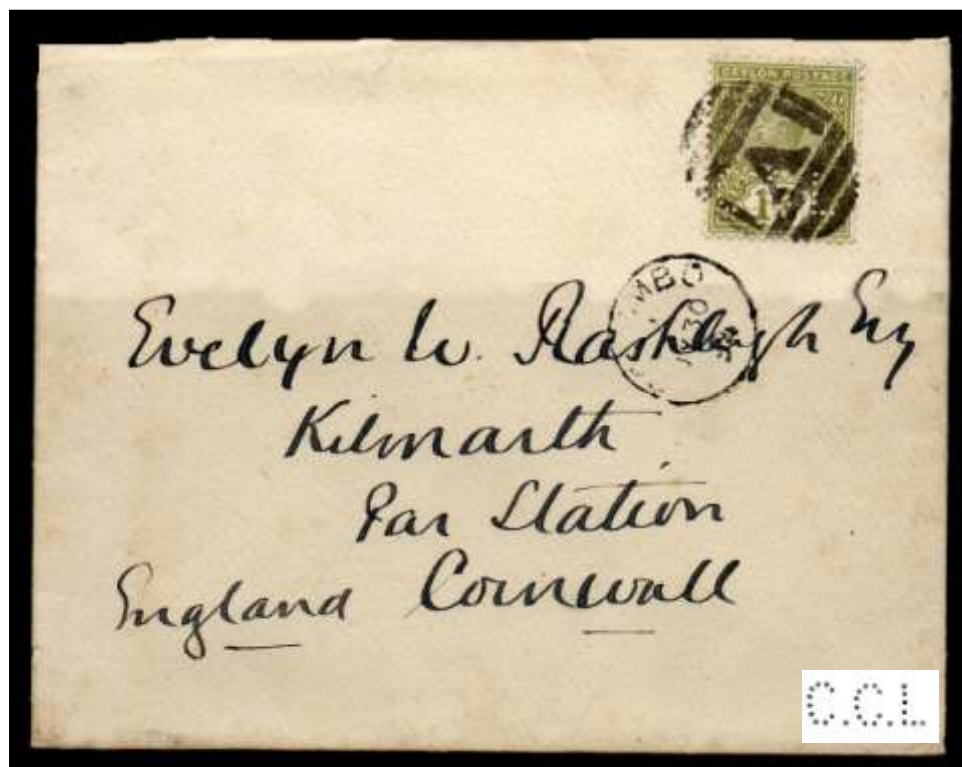 CEYLON POSTAGE
MBO
30
Evelyn W. Rashleigh Esq
Kilmarth
Par Station
England Cornwall
C.C.L.